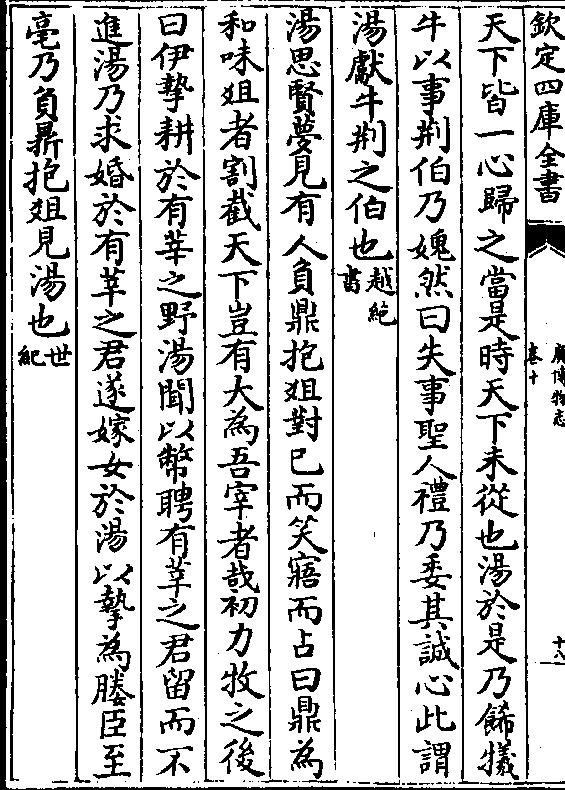 欽定四庫全書
廣博物志
卷十
十八
天下皆一心歸之當是時天下未從也湯於是乃飾犧
牛以事荆伯乃媿然曰失事聖人禮乃委其誠心此謂
湯獻牛荆之伯也越絶書
湯思賢夢見有人負鼎抱俎對己而笑寤而占曰鼎為
和味俎者割截天下豈有大為吾宰者哉初力牧之後
曰伊摯耕於有莘之野湯聞以幣聘有莘之君留而不
進湯乃求婚於有莘之君遂嫁女於湯以摯為媵臣至
亳乃負鼎抱俎見湯也世紀